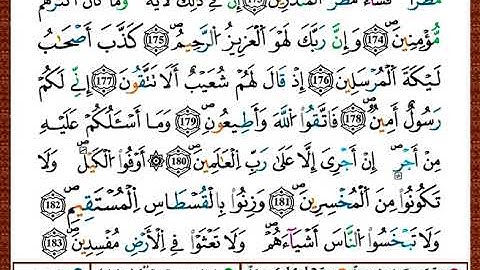 مَّطَرًا فَسَآءَ مَطَرُ الْمُنذَرِينَ 173 إِنَّ فِي ذَٰلِكَ لَأٓيَةً وَمَا كَانَ أَكْثَرُهُم
مُّؤْمِنِينَ 174 وَإِنَّ رَبَّكَ لَهُوَ الْعَزِيزُ الرَّحِيمُ 175 كَذَّبَ أَصْحَٰبُ
لَيْكَةَ الْمُرْسَلِينَ 176 إِذْ قَالَ لَهُمْ شُعَيْبٌ أَلَا تَتَّقُونَ 177 إِنِّي لَكُمْ
رَسُولٌ أَمِينٌ 178 فَاتَّقُوا اللَّهَ وَأَطِيعُونِ 179 وَمَا أَسْـَٔلُكُمْ عَلَيْهِ
مِنْ أَجْرٍ إِنْ أَجْرِىَ إِلَّا عَلَىٰ رَبِّ الْعَٰلَمِينَ 180 ۞ أَوْفُوا الْكَيْلَ وَلَا
تَكُونُوا مِنَ الْمُخْسِرِينَ 181 وَزِنُوا بِالْقُسْطَاسِ الْمُسْتَقِيمِ 182
وَلَا تَبْخَسُوا النَّاسَ أَشْيَآءَهُمْ وَلَا تَعْثَوْا فِي الْأَرْضِ مُفْسِدِينَ 183